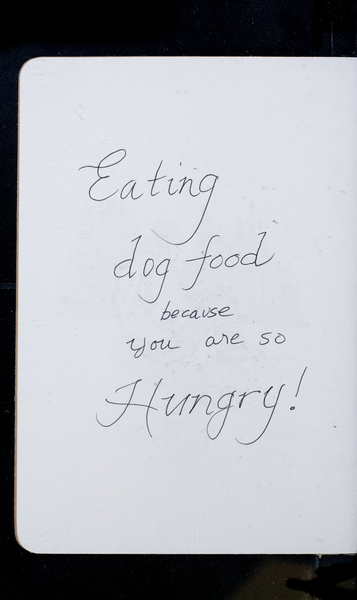 Eating
dog food
because
you are so
Hungry!